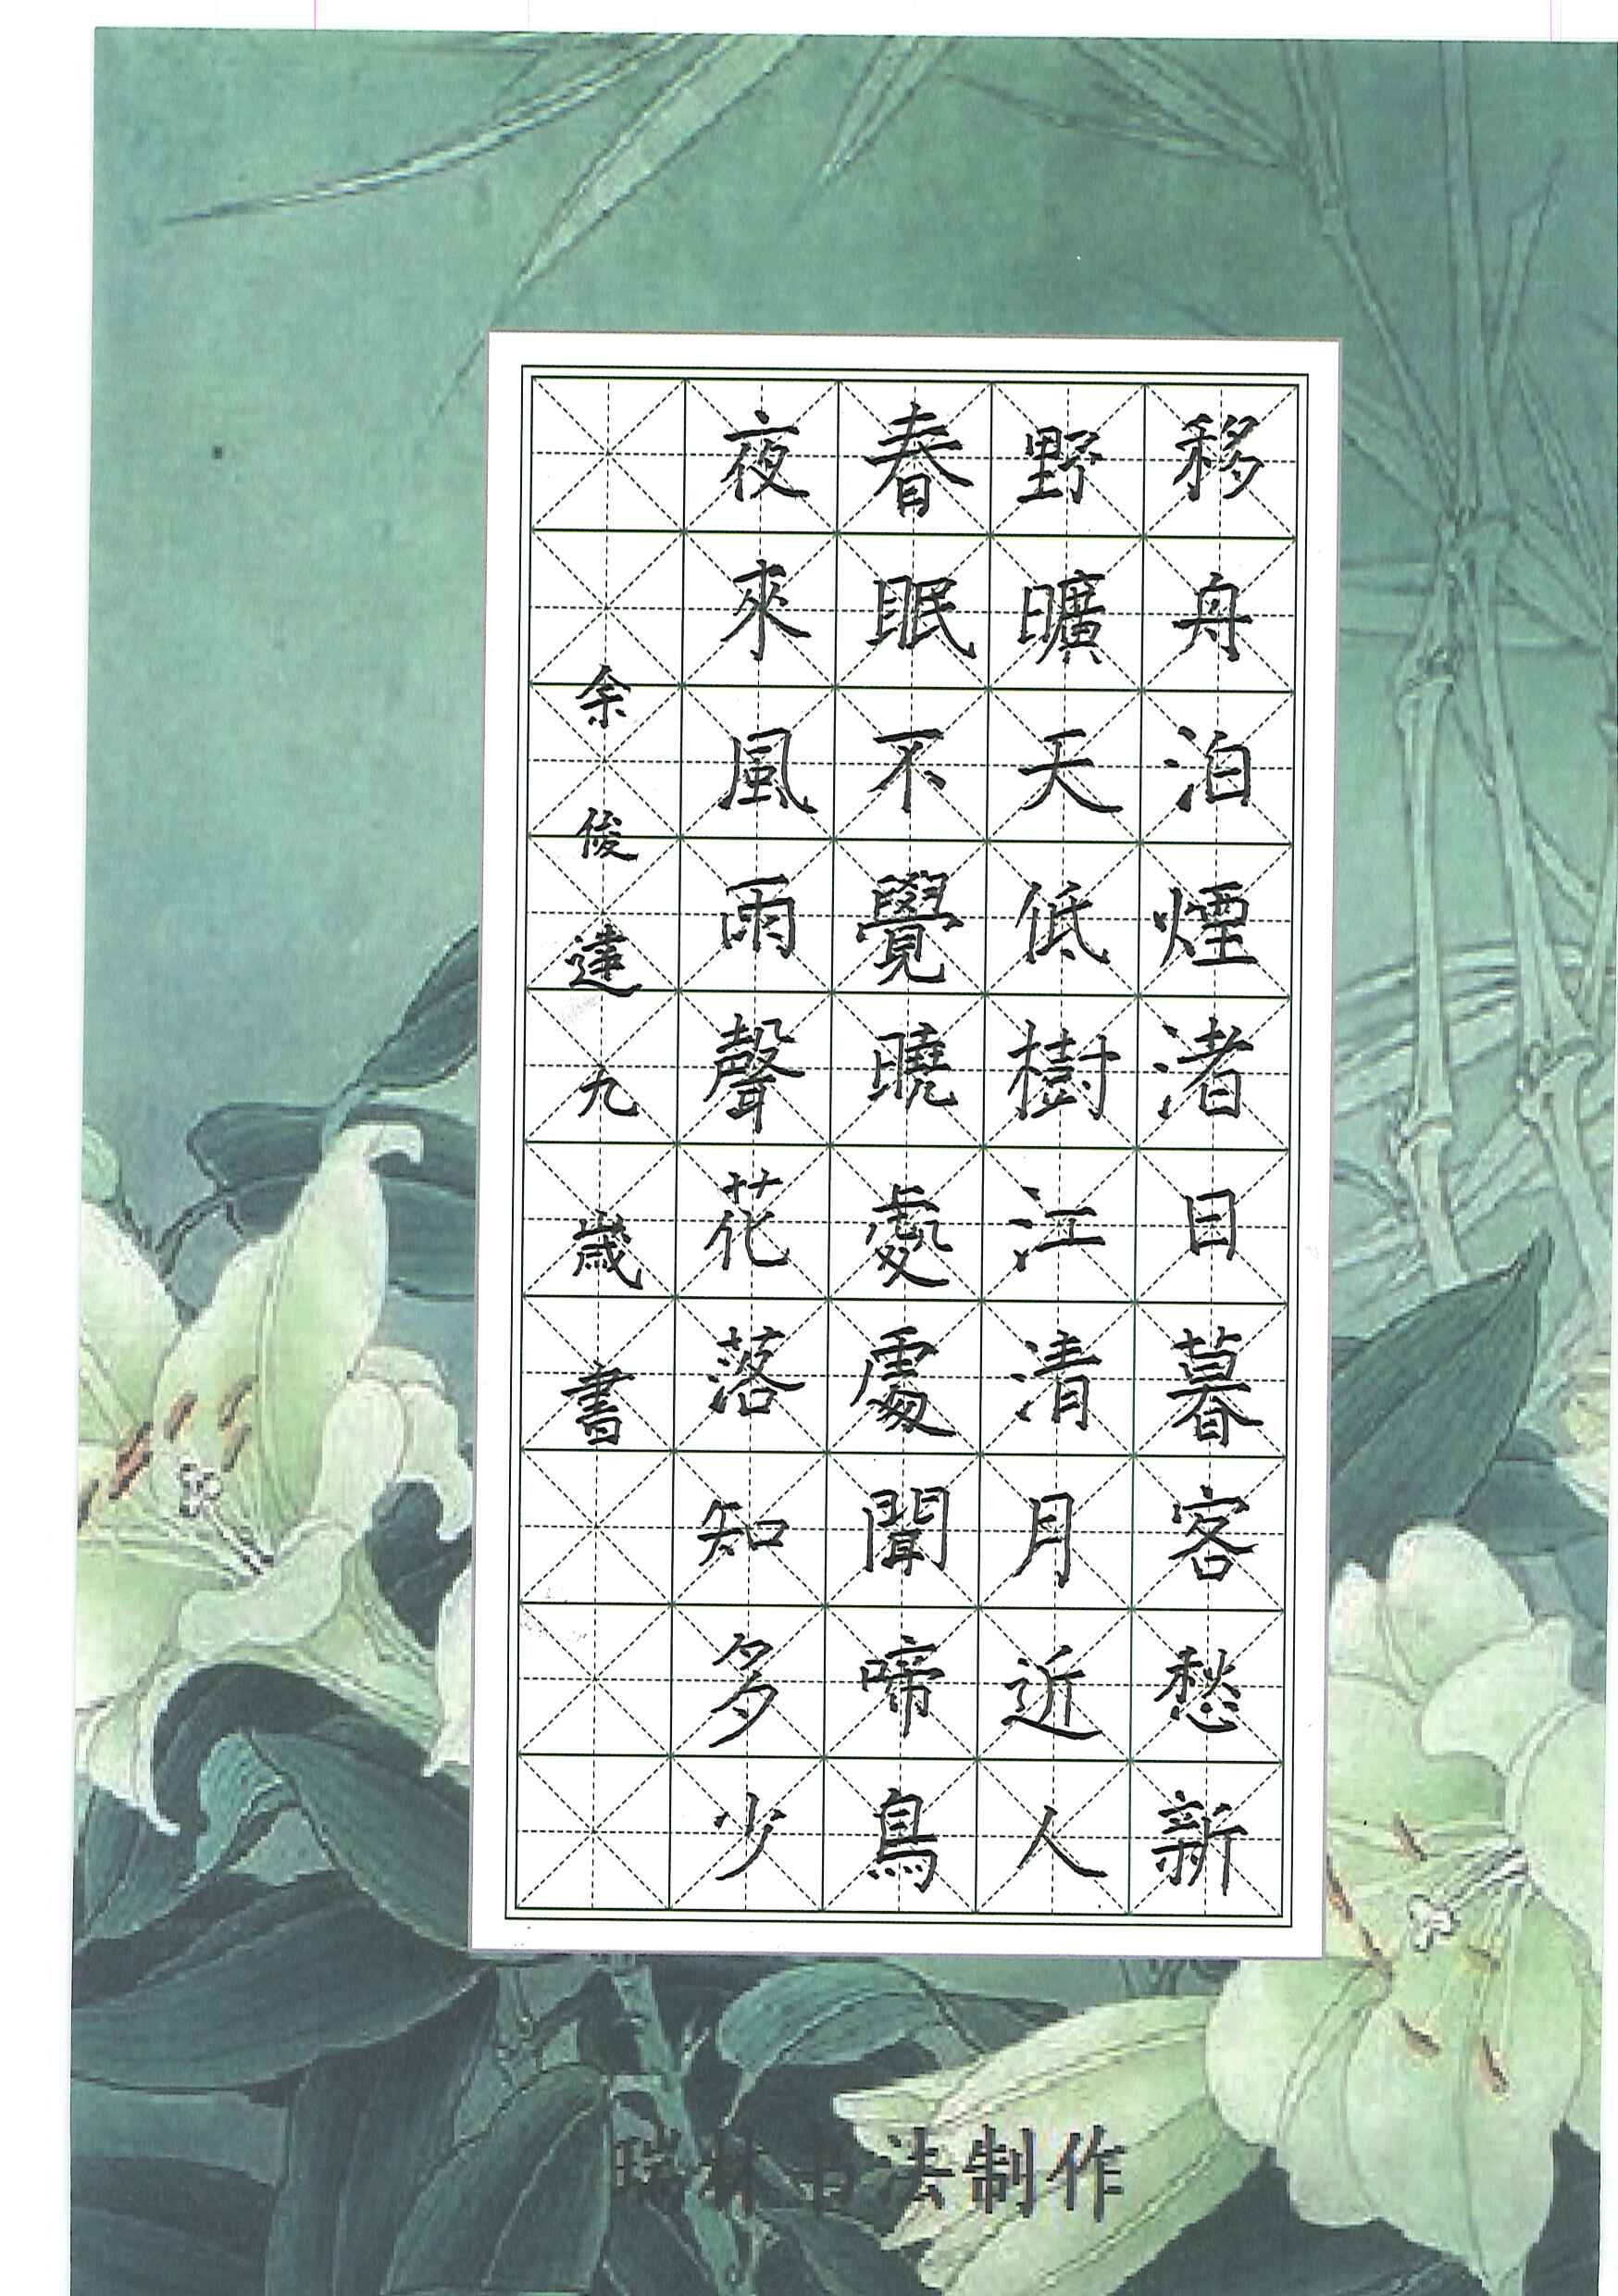 移舟泊煙渚日暮客愁新
野曠天低樹江清月近人
春眠不覺曉處處聞啼鳥
夜來風雨聲花落知多少
余俊達九歲書
瑞林书法制作